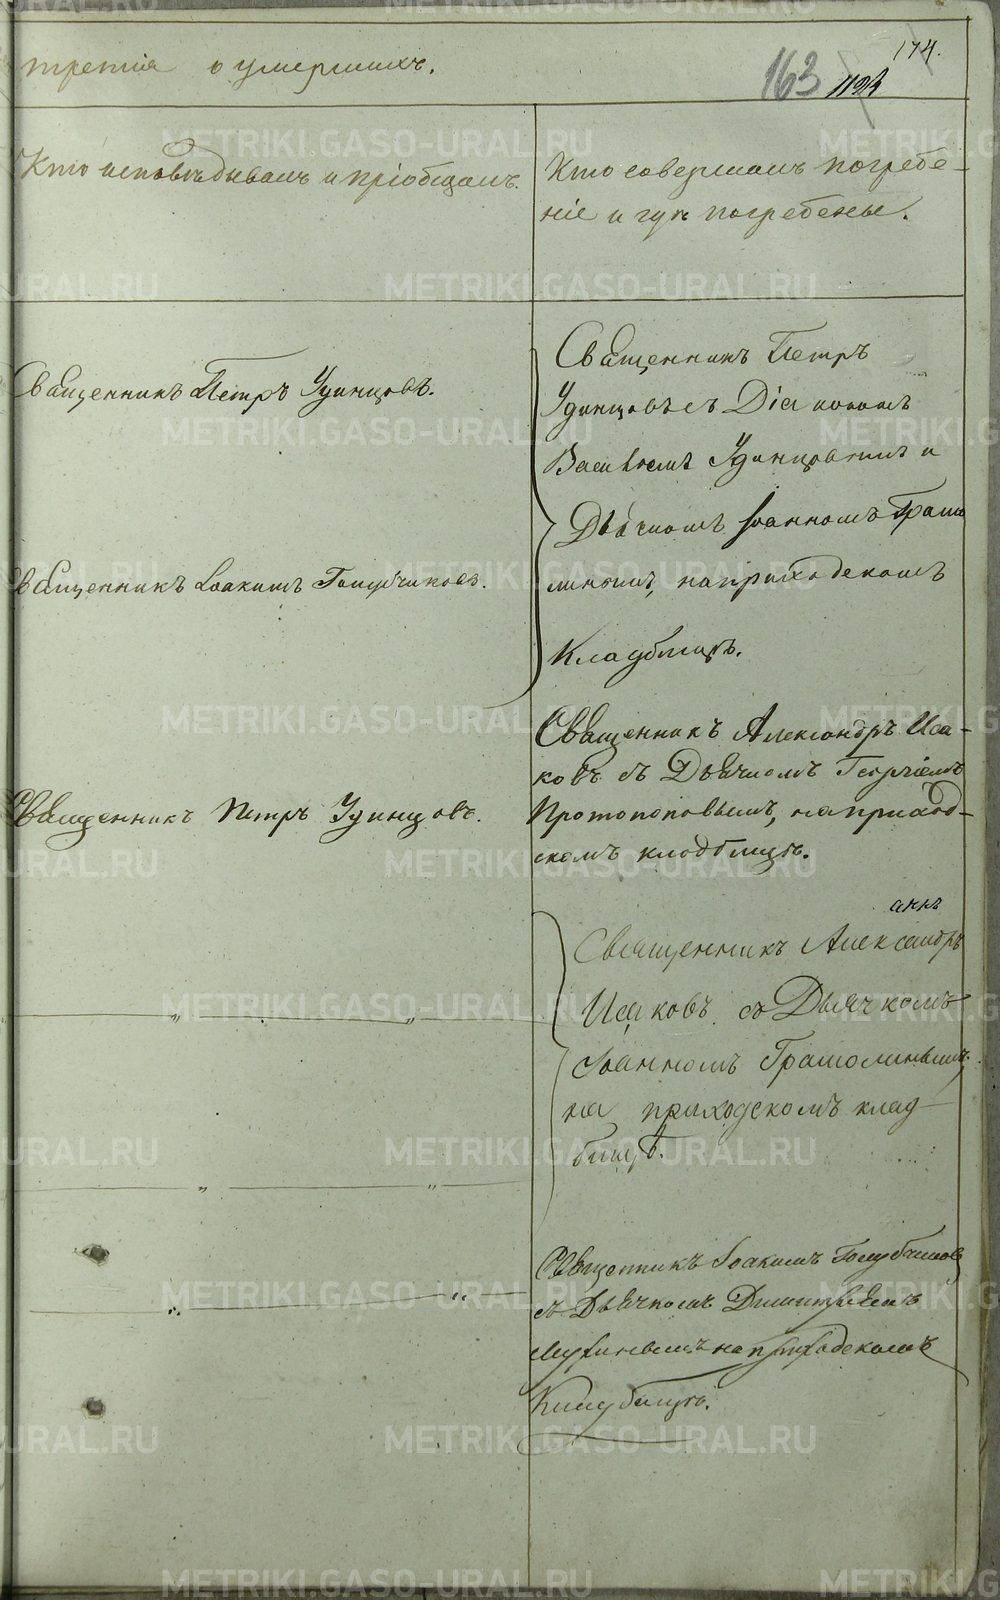 третія о умершихъ.
163 1194 174.
Кто исповѣдывалъ и пріобщалъ.
Кто совершалъ погребе-
ніе и гдѣ погребены.
Священникъ Петръ Удинцовъ.
Священникъ Іоакимъ Голубчиковъ.
Священникъ Петръ Удинцовъ.
Священникъ Петръ
Удинцовъ съ Діакономъ
Василіемъ Удинцовымъ и
Дьячкомъ Іоанномъ Грамо
линымъ, на приходскомъ
Кладбищѣ.
Священникъ Александръ Иса-
ковъ съ Дьячкомъ Георгіемъ
Протопоповымъ, на приход-
скомъ кладбищѣ.
Священникъ Александръ
Исаковъ съ Дьячкомъ
Іоанномъ Грамолинымъ,
на приходскомъ клад-
бищѣ.
Священникъ Іоакимъ Голубчиковъ
съ Дьячкомъ Димитріемъ
на приходскомъ
Кладбищѣ.
METRIKI.GASO-URAL.RU